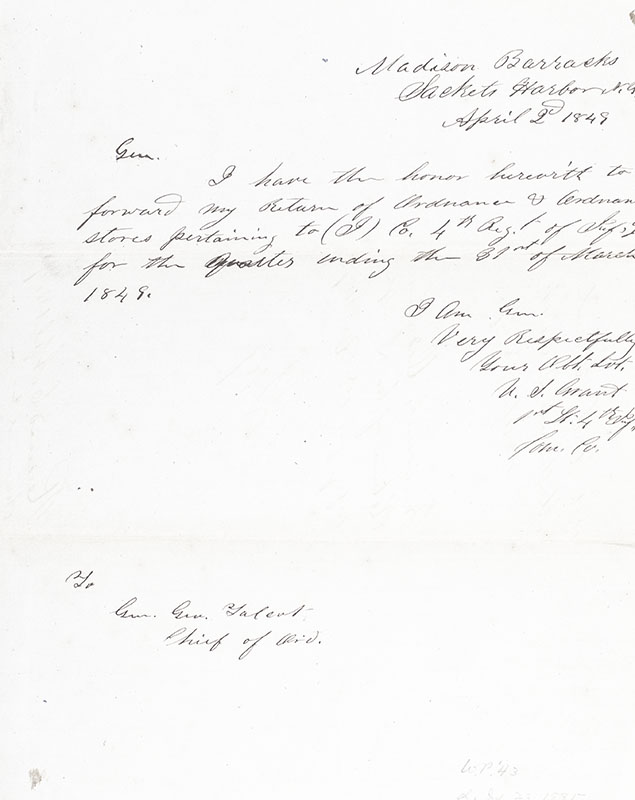 Madison Barracks
Sackets Harbor N.Y.
April 2d 1849
Gen.
I have the honor herewith to
forward my Return of Ordnance & Ordnan
stores pertaining to (I) Co. 4th Reg.t of
for the Quarter ending the 31st of March
1849.
I Am Gen.
Very Respectfully
Your Obt. Svt.
U. S. Grant
1st Lt. 4th
Com. Co.
To
Gen. Geo. Talcot
Chief of Ord.